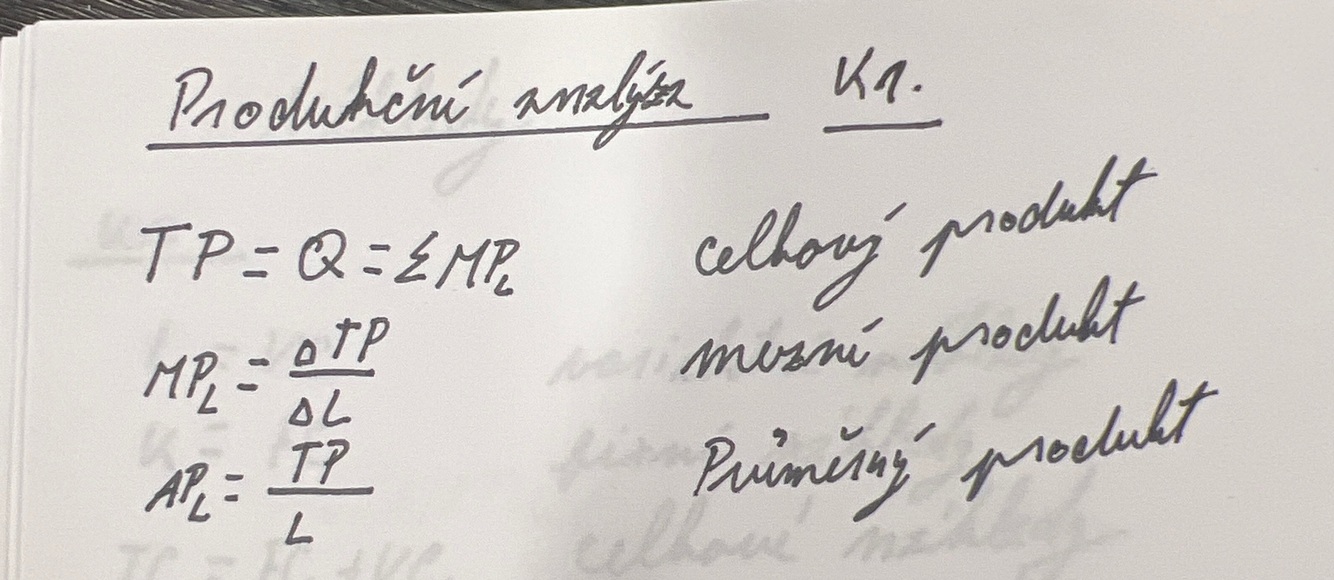 Produkční analýza Kr.
TP = Q = Σ MP_L celkový produkt
MP_L = ΔTP / ΔL mezní produkt
AP_L = TP / L Průměrný produkt